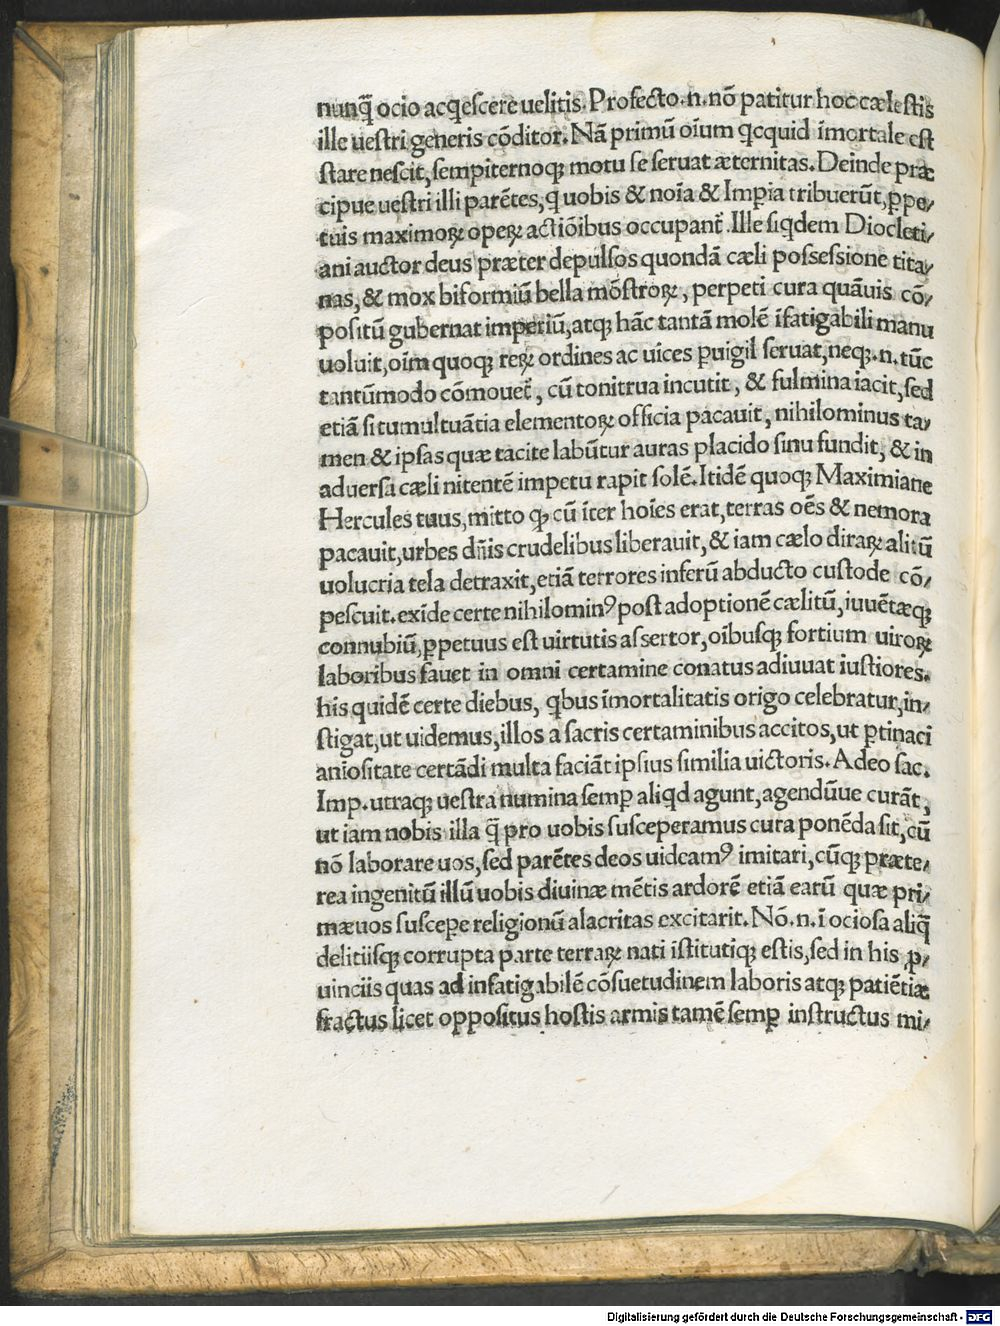 nunq̄ ocio acq̇escere uelitis. Profecto.n.nō patitur hoc cælestis
ille uestri generis cōditor. Nā primū oīum qcquid īmortale est
stare nescit, sempiternoq; motu se seruat æternitas. Deinde præ
cipue uestri illi parētes, q uobis & noīa & Imp̱ia tribuerūt, p̱pe/
tuis maximoꝝ opeꝝ actiōibus occupant̄. Ille siqdem Diocleti/
ani auctor deus præter depulsos quondā cæli possessione tita/
nas, & mox biformiū bella mōstroꝝ, perpeti cura quāuis cō/
positū gubernat imperiū, atq; hāc tantā molē īfatigabili manu
uoluit, oīm quoq; reꝝ ordines ac uices p̱uigil seruat, neq;.n. tūc
tantūmodo cōmouet̄, cū tonitrua incutit, & fulmina iacit, sed
etiā si tumultuātia elementoꝝ officia pacauit, nihilominus ta/
men & ipsas quæ tacite labūtur auras placido sinu fundit, & in
aduersa cæli nitentē impetu rapit solē. Itidē quoq; Maximiane
Hercules tuus, mitto ꝙ cū īter hoīes erat, terras oēs & nemora
pacauit, urbes dn̄is crudelibus liberauit, & iam cælo diraꝝ alitū
uolucria tela detraxit, etiā terrores inferū abducto custode cō/
pescuit. exīde certe nihilominꝰ post adoptionē cælitū, iuuētæq;
connubiū, p̱petuus est uirtutis assertor, oībusq; fortium uiroꝝ
laboribus fauet in omni certamine conatus adiuuat iustiores.
his quidē certe diebus, qbus īmortalitatis origo celebratur, in/
stigat, ut uidemus, illos a sacris certaminibus accitos, ut p̱tinaci
aniositate certādi multa faciāt ipsius similia uictoris. Adeo sac.
Imp. utraq; uestra numina semp̱ aliqd agunt, agendūue curāt,
ut iam nobis illa q̄ pro uobis susceperamus cura ponēda sit, cū
nō laborare uos, sed parētes deos uideamꝰ imitari, cūq; præte/
rea ingenitū illū uobis diuinæ mētis ardorē etiā earū quæ pri/
mæuos suscep̱e religionū alacritas excitarit. Nō.n. ī ociosa aliq̄
delitiisq; corrupta parte terraꝝ nati īstitutiq; estis, sed in his ꝓ/
uinciis quas ad infatigabilē cōsuetudinem laboris atq; patiētiæ
fractus licet oppositus hostis armis tamē semp̱ instructus mi/
Digitalisierung gefördert durch die Deutsche Forschungsgemeinschaft - DFG